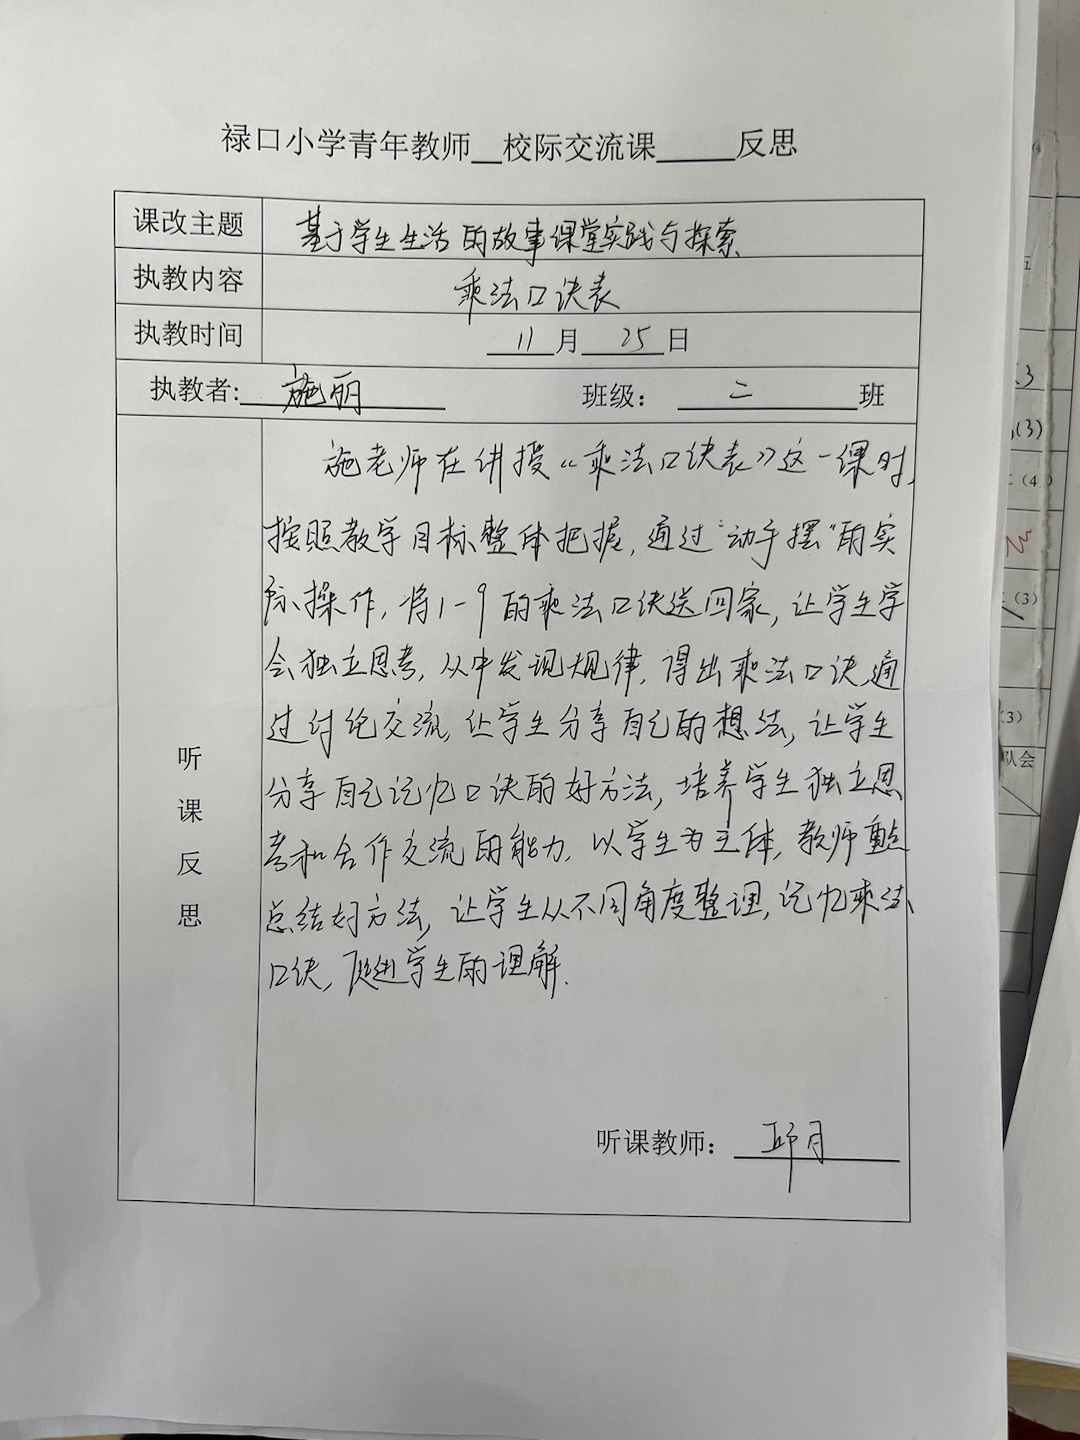 禄口小学青年教师__校际交流课_____反思
课改主题 基于学生生活的故事课堂实践与探索
执教内容 乘法口诀表
执教时间 11月25日
执教者: 施丽 班级: 二 班
听课反思
施老师在讲授《乘法口诀表》这一课时,
按照教学目标整体把握,通过“动手摆”的实
际操作,将1-9的乘法口诀送回家,让学生学
会独立思考,从中发现规律,得出乘法口诀,通
过讨论交流,让学生分享自己的想法,让学生
分享自己记忆口诀的好方法,培养学生独立思
考和合作交流的能力,以学生为主体,教师重点
总结好方法,让学生从不同角度整理,记忆乘法
口诀,促进学生的理解.
听课教师: 邱月
(3)
(4)
(3)
(3)
队会